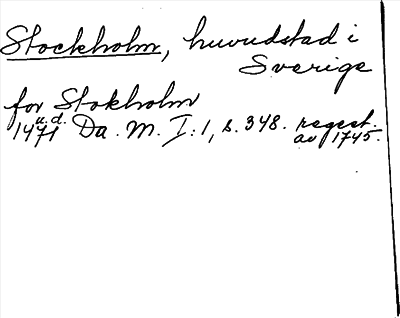 Stockholm, huvudstad i
Sverige
for Stokholm
1471 u.d. Da. M. I: 1, s. 348. regest.
av 1745.